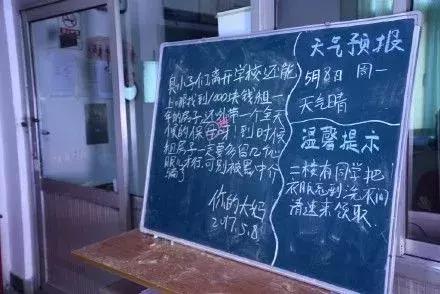 臭小子们离开学校还能
上哪找到1000块钱租一
年的房子还外带一个全天
候的保安呀！到时候
租房子一定要多留几个心
眼儿才行，可别被黑中介
骗了
你的大妈
2017.5.8
天气预报
5月8日 周一
天气晴
温馨提示
二楼有同学把
衣服忘到洗衣间
请速来领取.